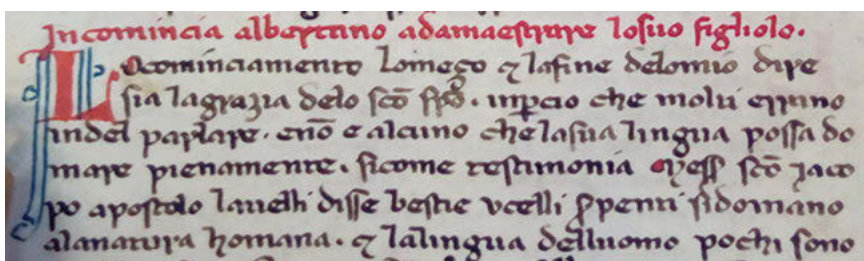 Incomincia albertano adamaestrare losuo figliolo.
Lo cominciamento lomeço ⁊ lafine delomio dire
sia lagrazia delo sco spo. inpcio che molti errano
indel parlare. enō e alcuno che lasua lingua possa do
mare pienamente. sicome testimonia sco Jaco
po apostolo disse bestie vcelli ꝑpenti sidomano
alanatura homana. ⁊ lalingua delluomo pochi sono